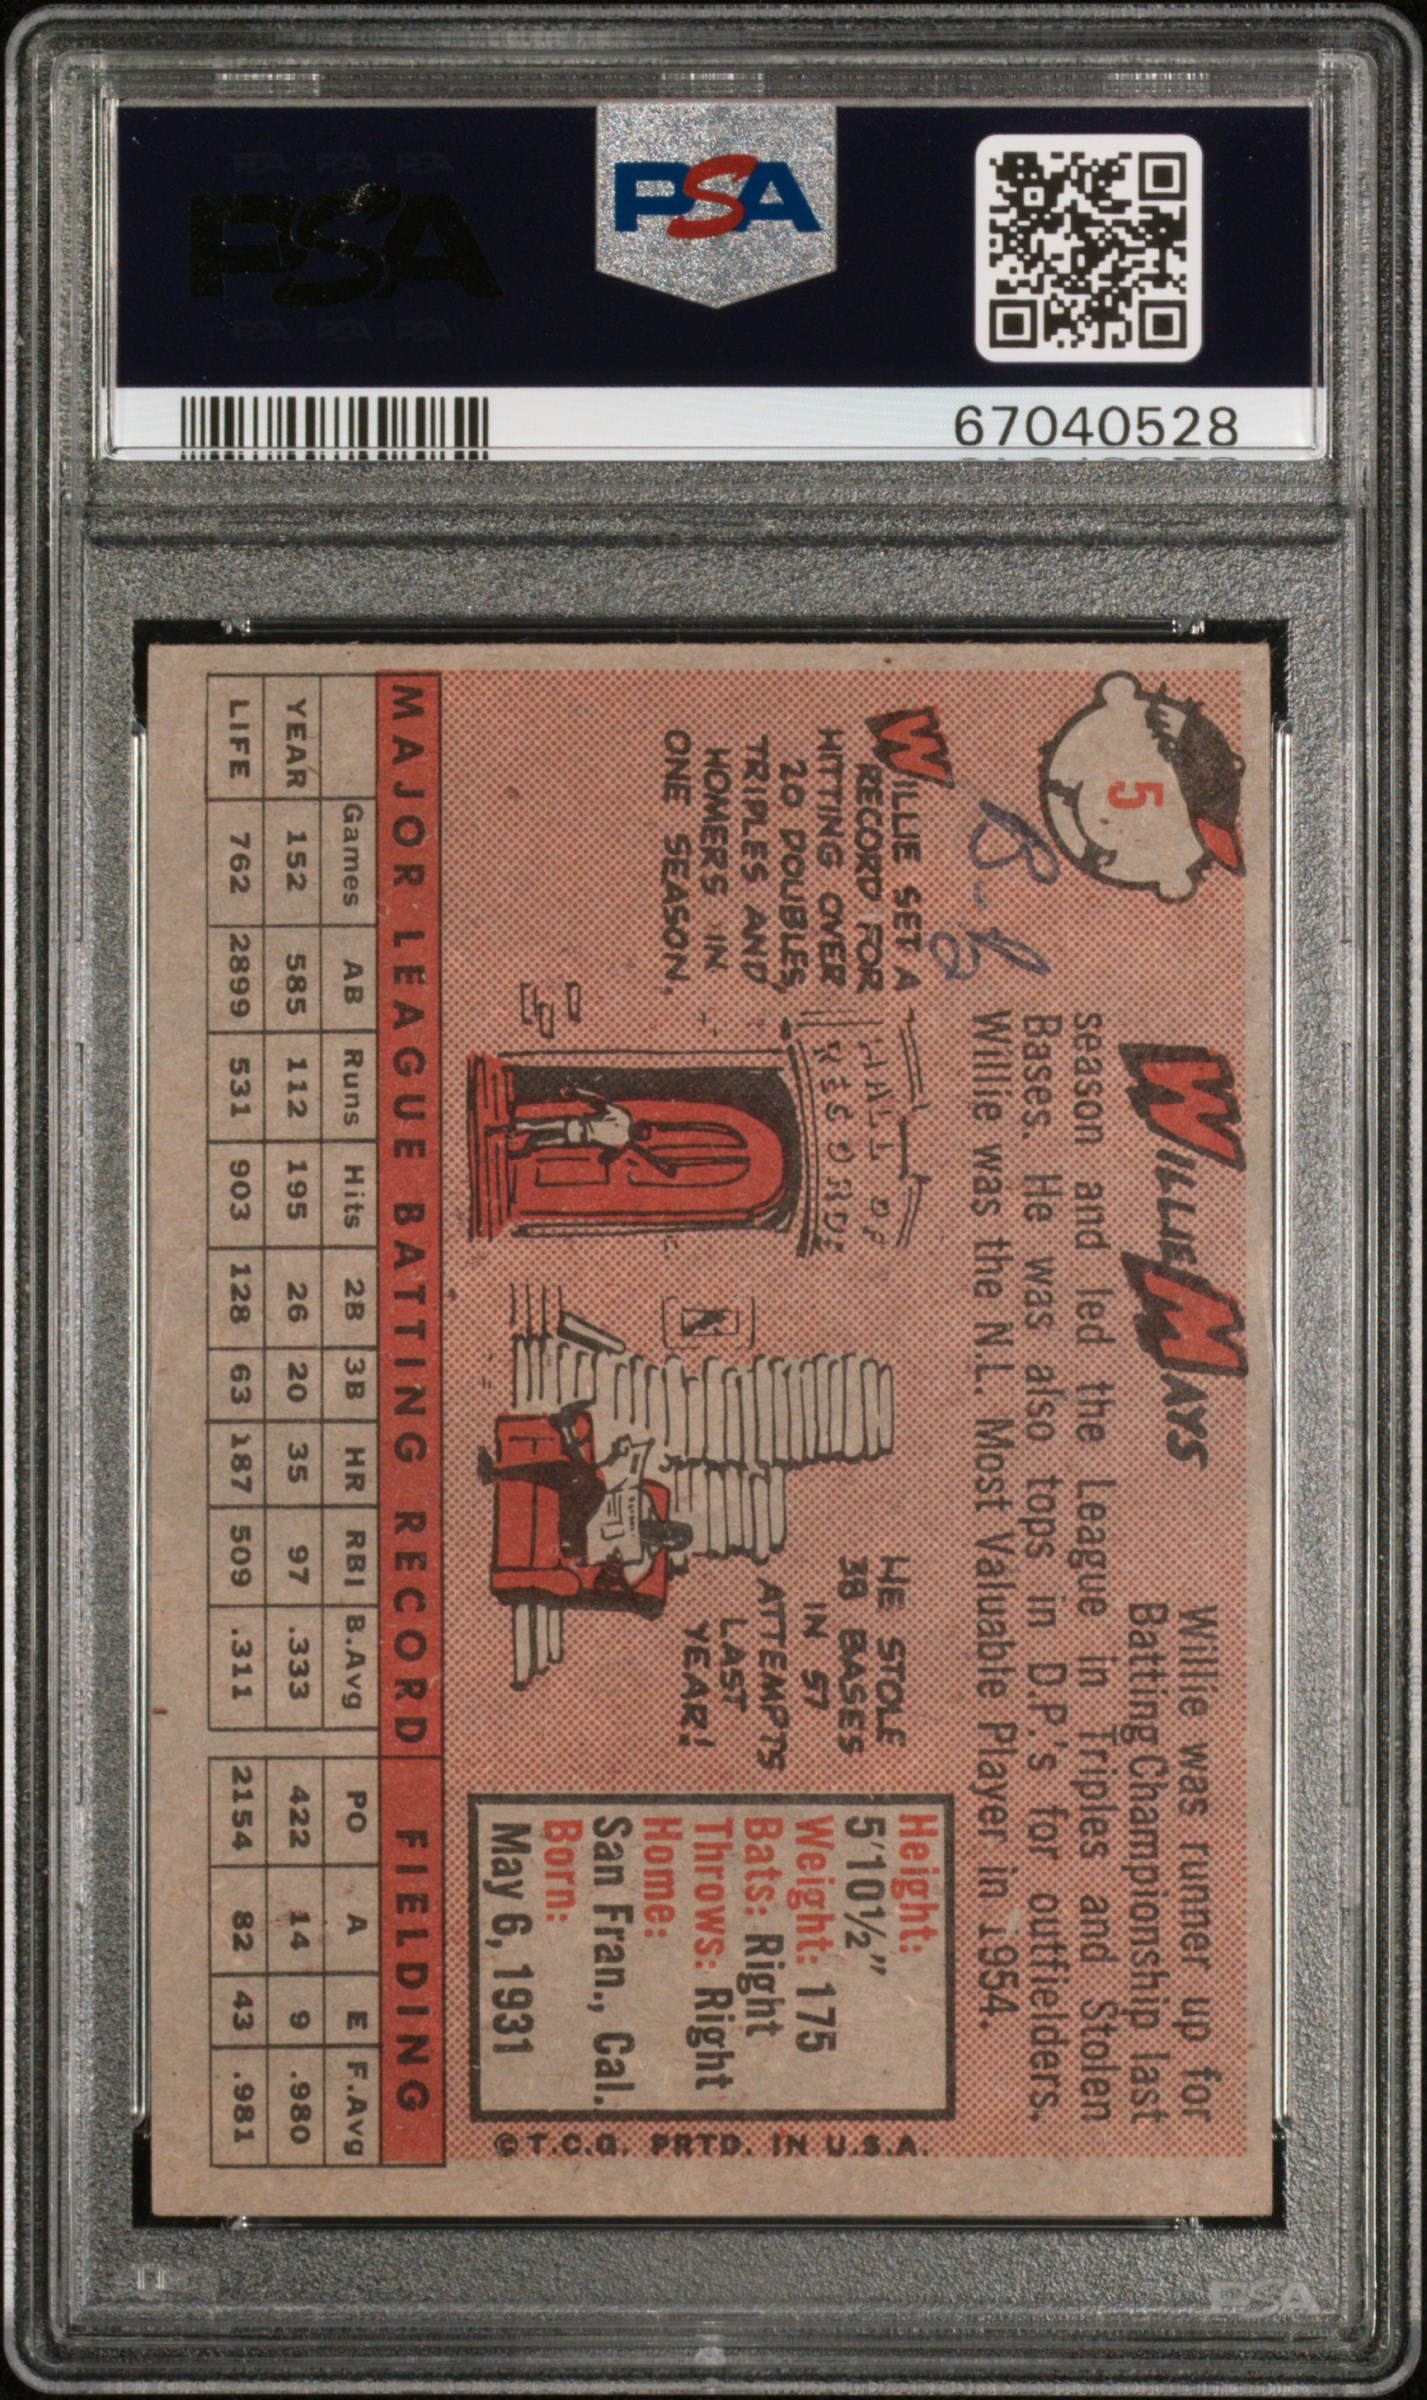 PSA
PSA PSA PSA
PSA
PSA PSA PSA
67040528
5
WILLIE MAYS
Willie was runner up for
Batting Championship last
season and led the League in Triples and Stolen
Bases. He was also tops in D.P.'s for outfielders.
Willie was the N.L. Most Valuable Player in 1954.
WILLIE SET A
RECORD FOR
HITTING OVER
20 DOUBLES,
TRIPLES AND
HOMERS IN
ONE SEASON.
HALL OF
RECORDS
HE STOLE
38 BASES
IN 57
ATTEMPTS
LAST
YEAR!
Height:
5'10½"
Weight: 175
Bats: Right
Throws: Right
Home:
San Fran., Cal.
Born:
May 6, 1931
© T.C.G. PRTD. IN U.S.A.
MAJOR LEAGUE BATTING RECORD FIELDING
Games AB Runs Hits 2B 3B HR RBI B.Avg PO A E F.Avg
YEAR 152 585 112 195 26 20 35 97 .333 422 14 9 .980
LIFE 762 2899 531 903 128 63 187 509 .311 2154 82 43 .981
PSA